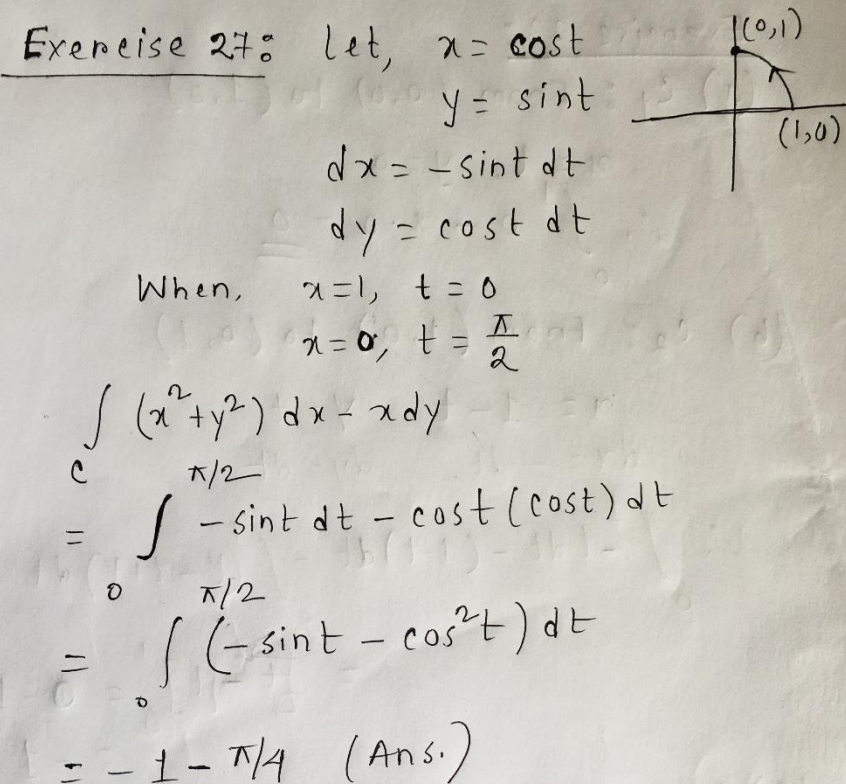 Exercise 27: let, x = cost
(0,1)
y = sint
(1,0)
dx = -sint dt
dy = cost dt
When, x=1, t = 0
x=0, t = π/2
∫_C (x²+y²) dx - xdy
= ∫_0^{π/2} -sint dt - cost (cost) dt
= ∫_0^{π/2} (-sint - cos²t) dt
= -1 - π/4 (Ans.)